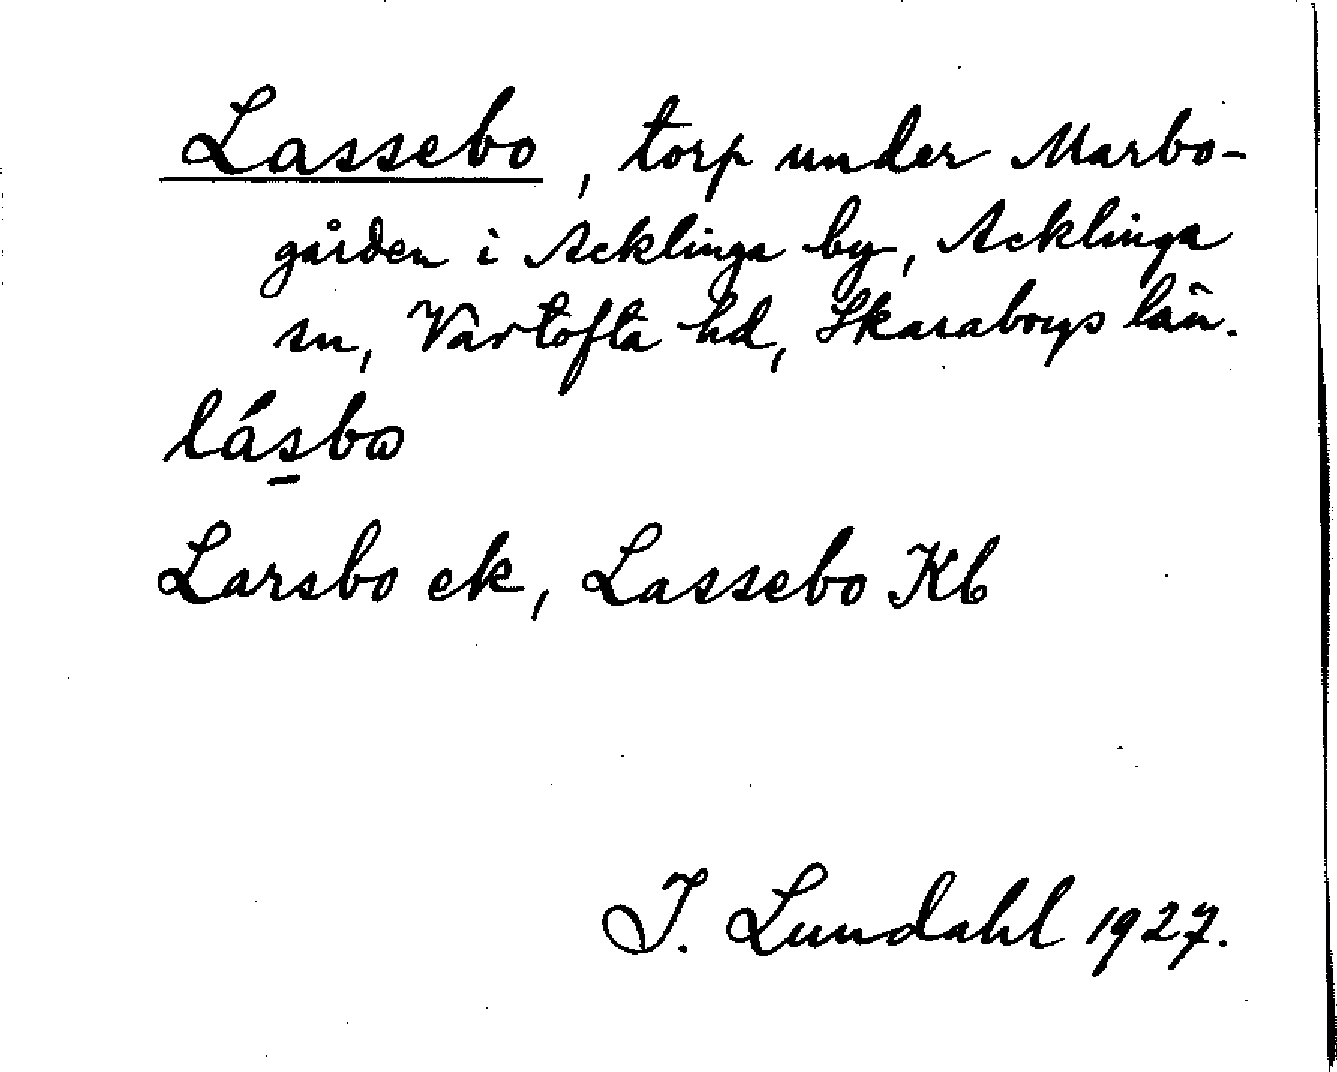 Lassebo, torp under Marbo-
gården i Acklinga by, Acklinga
sn, Vartofta hd, Skaraborgs län.
lásbɷ
Larsbo ek, Lassebo Kb
I. Lundahl 1927.